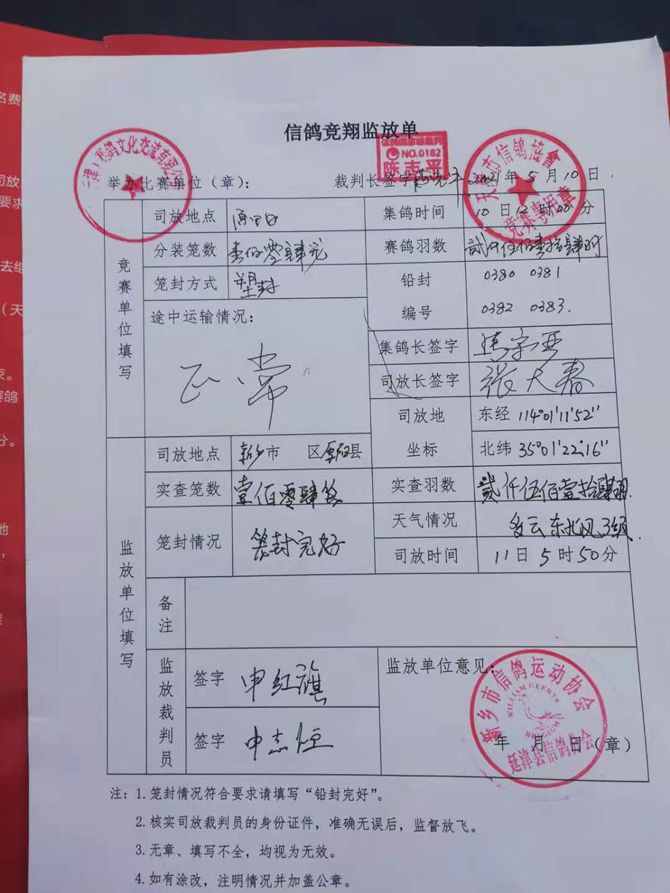 信鸽竞翔监放单
NO.0182
陈志平
举办比赛单位（章）： 裁判长签字 2021年5月10日
天津市信鸽协会
竞赛专用章
竞赛单位填写
司放地点 原阳 集鸽时间 10日12时00分
分装笼数 壹佰零肆笼 赛鸽羽数 贰仟伍佰壹拾肆羽
笼封方式 塑封 铅封编号 0380 0381
0382 0383.
途中运输情况： 正常
集鸽长签字
司放长签字 张大春
司放地坐标 东经 114°01'11.52''
北纬 35°01'22.16''
监放单位填写
司放地点 新乡市 区原阳县
实查笼数 壹佰零肆笼 实查羽数 贰仟伍佰壹拾肆羽
笼封情况 笼封完好 天气情况 多云东北风3级
司放时间 11日5时50分
备注
监放裁判员 签字 申红旗 监放单位意见：
签字 申志恒
年 月 日（章）
新乡市信鸽运动协会
WILLIAM GEERTS
BELGIUM
延津县信鸽分会
注：1.笼封情况符合要求请填写“铅封完好”。
2.核实司放裁判员的身份证件，准确无误后，监督放飞。
3.无章、填写不全，均视为无效。
4.如有涂改，注明情况并加盖公章。